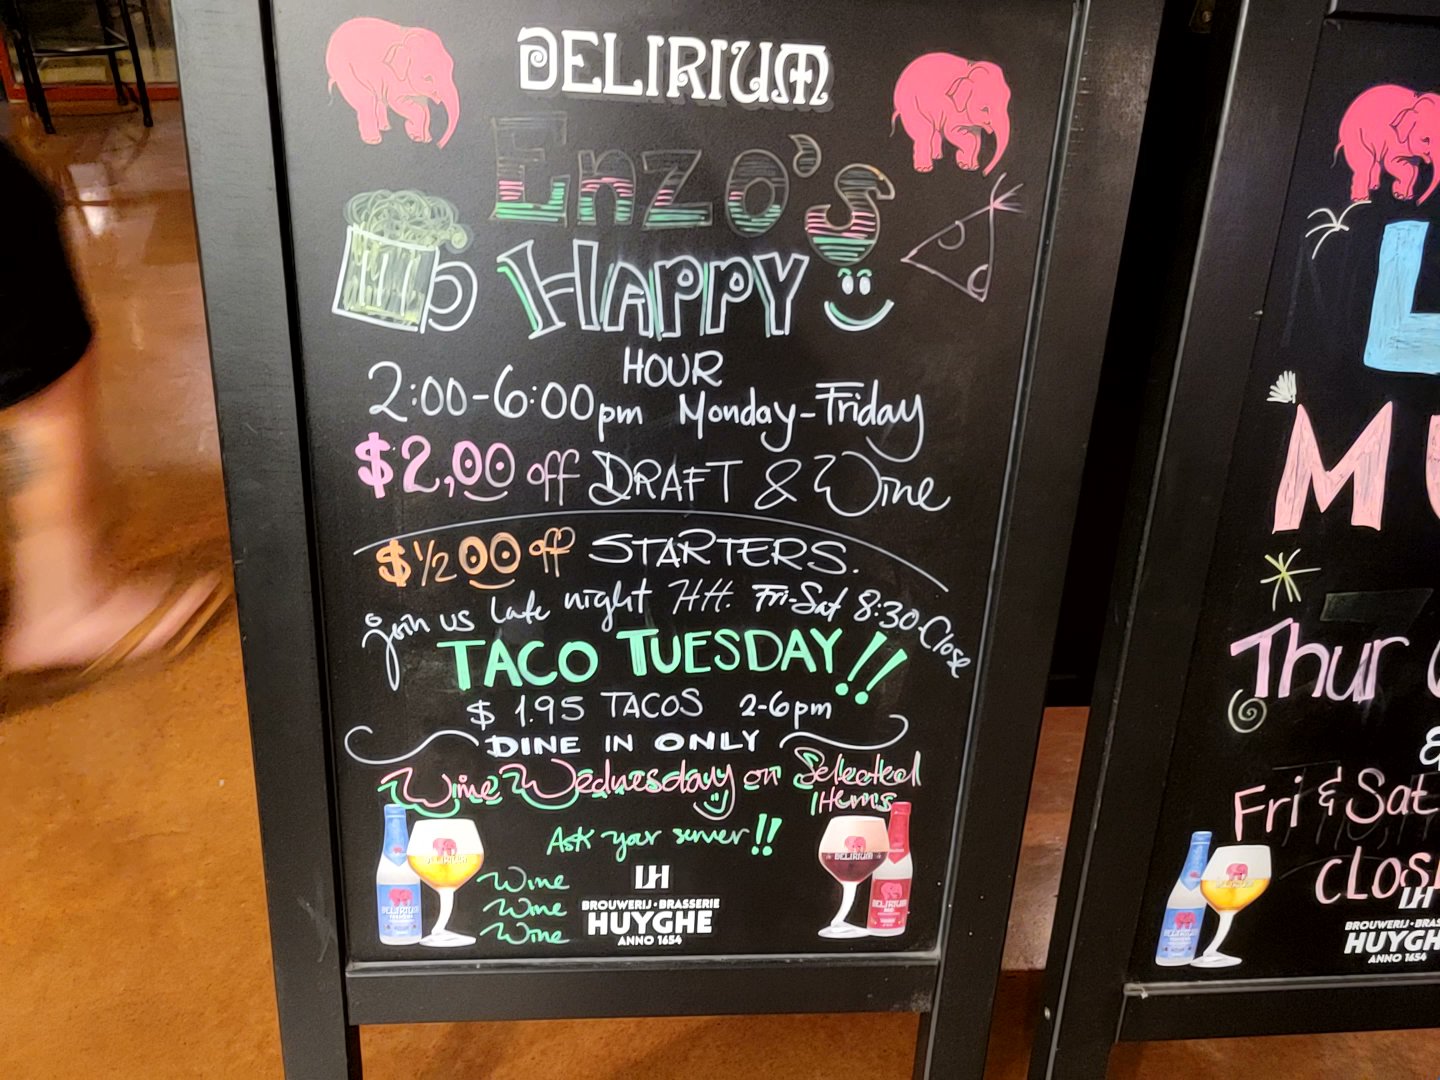 DELIRIUM
Enzo's
HAPPY
HOUR
2:00-6:00pm Monday-Friday
$2,00 off DRAFT & Wine
$ 1/2 00 off STARTERS.
join us late night HH. Fri-Sat 8:30-Close
TACO TUESDAY!!
$ 1.95 TACOS 2-6pm
DINE IN ONLY
Wine Wednesday on Selected
Items
Ask your server!!
DELIRIUM
DELIRIUM
Wine
Wine
Wine
LH
BROUWERIJ·BRASSERIE
HUYGHE
ANNO 1654
DELIRIUM
DELIRIUM
L
M
Thur
&
Fri & Sat
CLOS
LH
BROUWERIJ·BRAS
HUYGH
ANNO 1654